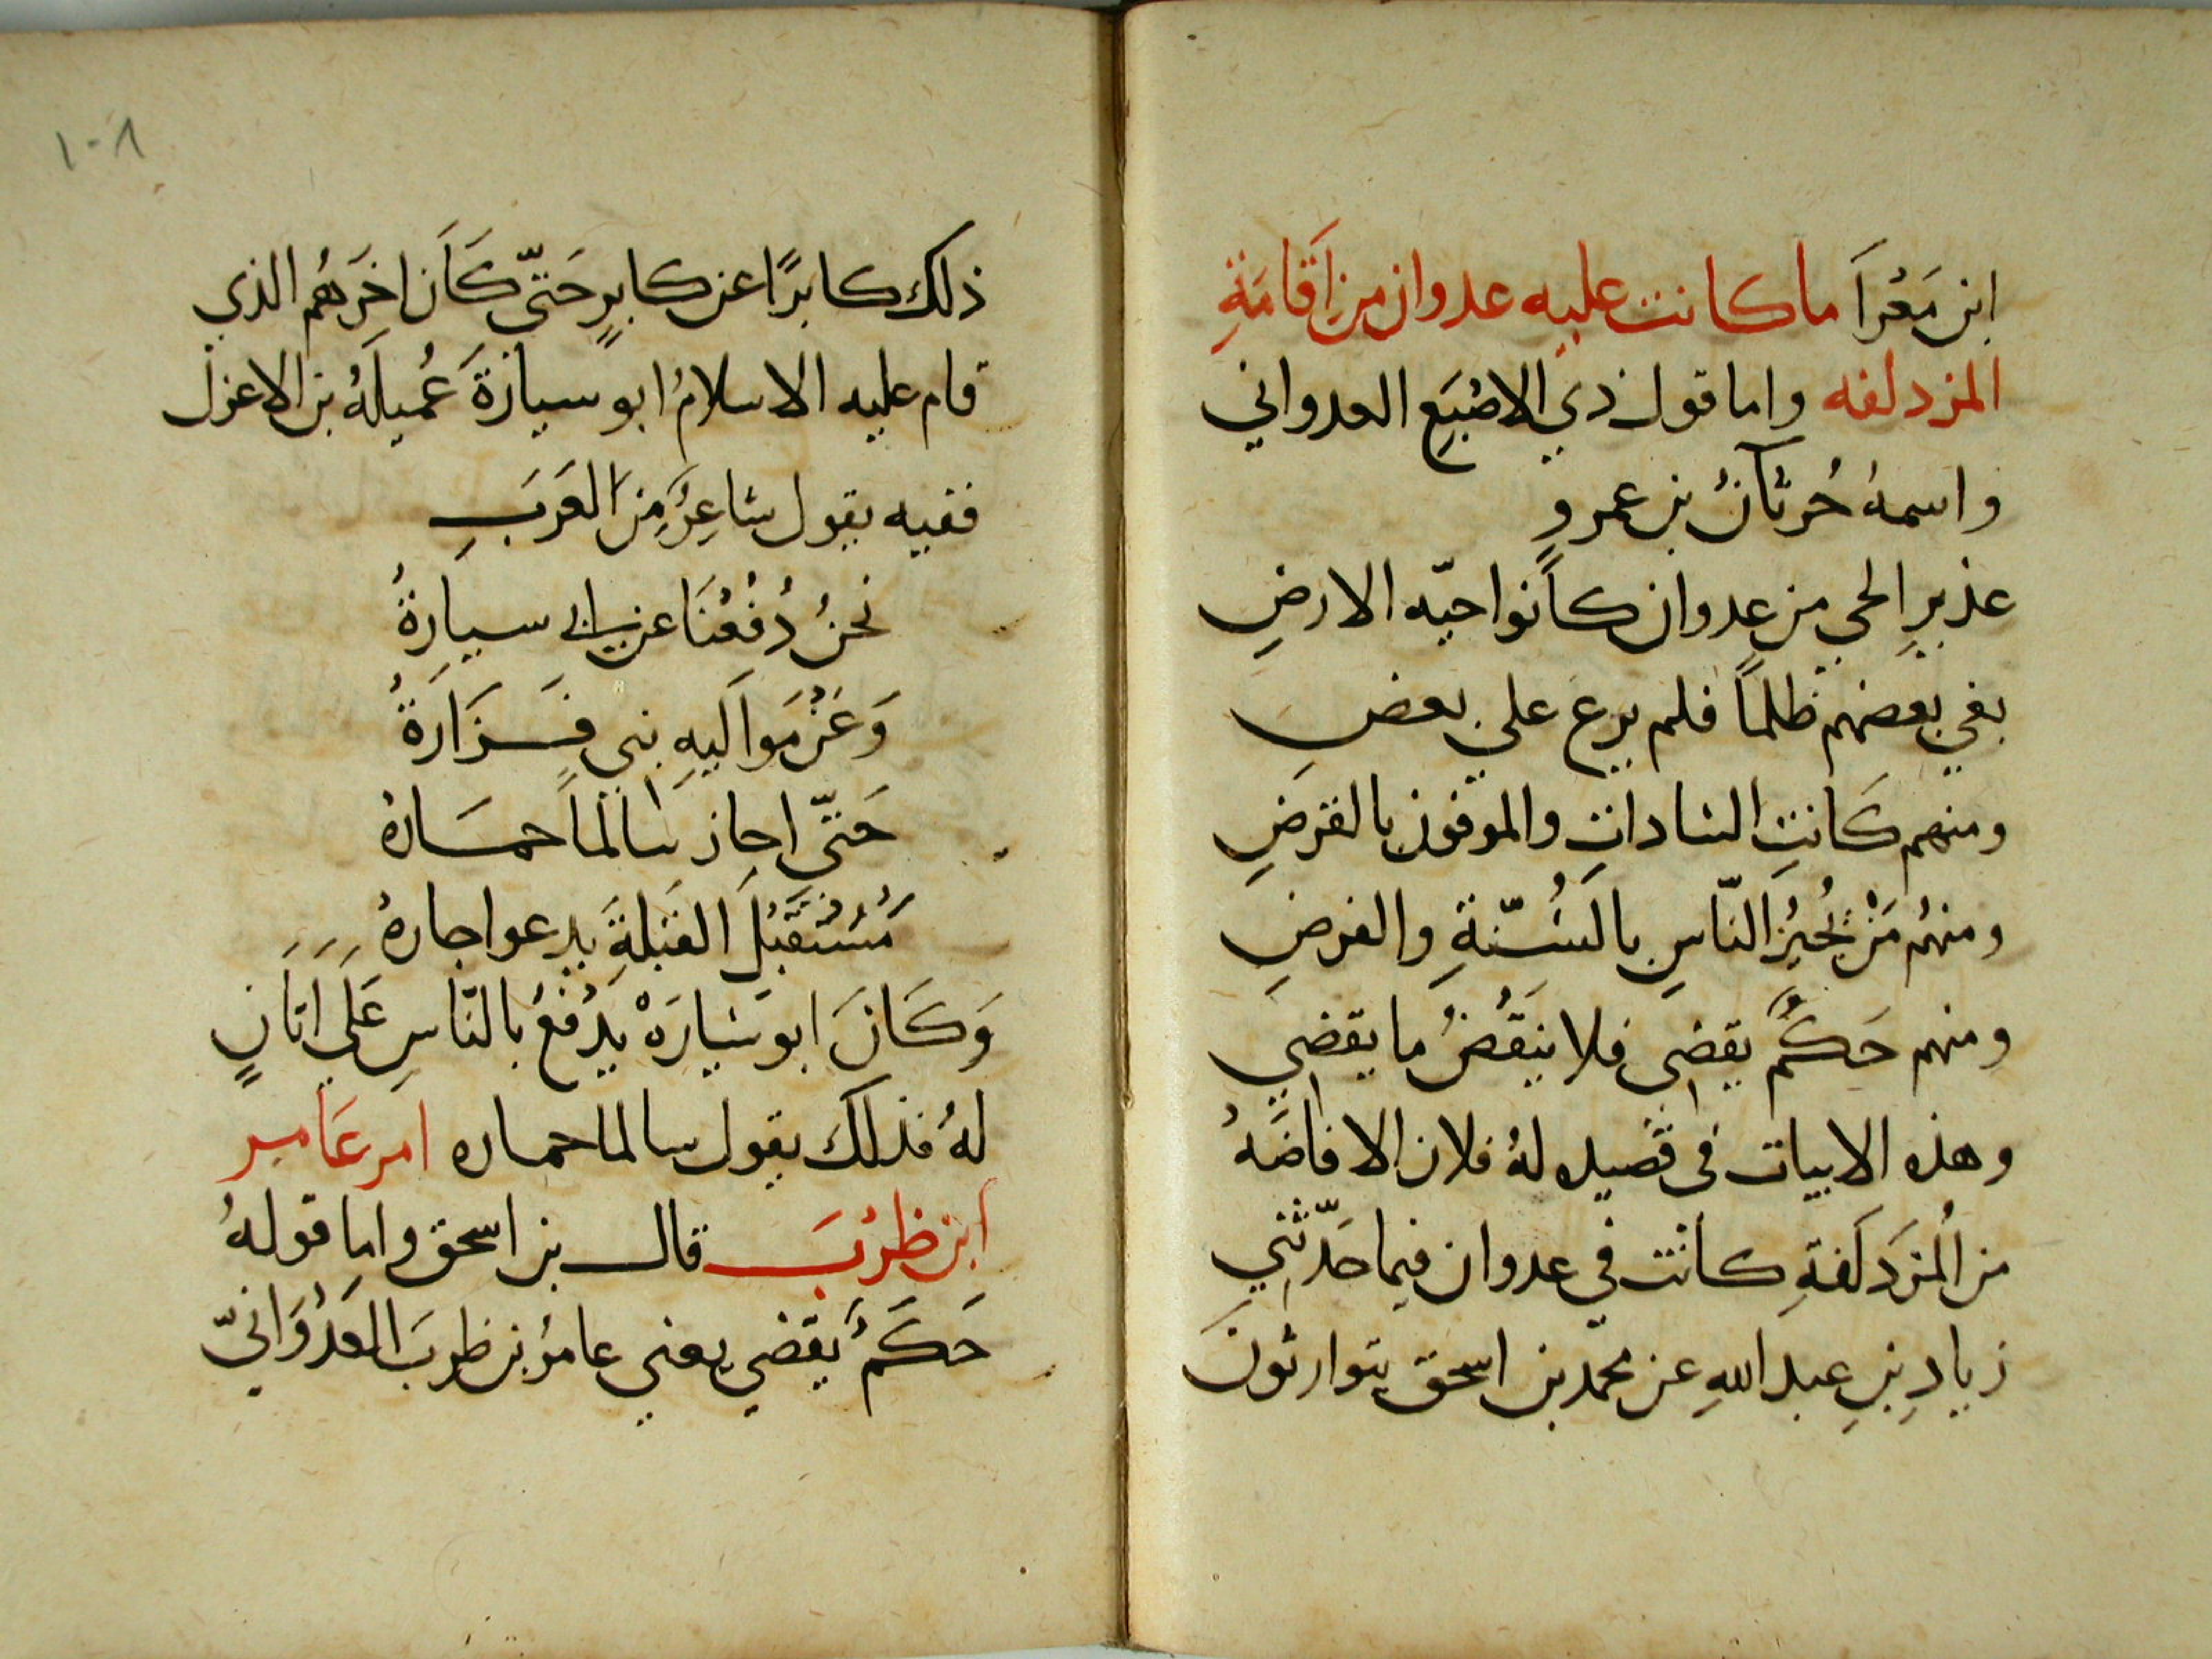 ابن مَغْرَآ ما كانت عليه عدوان من اقامَةِ
المزدلفه واما قول ذي الاصْبَعِ العدواني
واسمهُ حُرثآنُ بن عمرو
عذيرِ الحي من عدوان كانوا حيّه الارضِ
بغي بعضهم ظلماً فلم يرع علي بعضِ
ومنهم كَانتِ السادات والموفون بالقرضِ
ومنهُم مَنْ يُجيزُ النّاسِ بالسُّنّةِ والفرضِ
ومنهم حَكَمٌ يقضى فلا يَنقُضُ ما يقضي
وهذه الابيات فى قصيده لهُ فلان الافاضَهُ
من المُزدَلفةِ كانت في عدوان فيما حَدّثني
زيادِ بنِ عبد اللهِ عن محمّد بن اسحق يتوارثونَ
١٠٨
ذلك كابرًا عن كابرٍ حَتّى كَان اخَرِهُم الذي
قام عليه الاسلامُ ابو سيارةَ عُميلَهُ بن الاعزل
ففيه يقول شاعِرٌ مِنَ العَرَبِ
نحنُ دُفعْنَا عن ابي سيارِةُ
وَعَنْ مَوَاليهِ بني فَزَارَةُ
حَتّى اجاز سالماً حمَارهُ
مُسْتَقْبَلَ القبلةَ يدعوا جارهُ
وَكَانَ ابو سَيارَهْ يدْفعُ بالنّاسِ عَلَي اتَانٍ
لهُ فذلكَ يقول سالما حماره امر عَامر
ابن ظرْبَ قال بن اسحق واما قولهُ
حَكَمٌ يقضي يعني عامرُ بن ظربَ العَدْوَانيّ